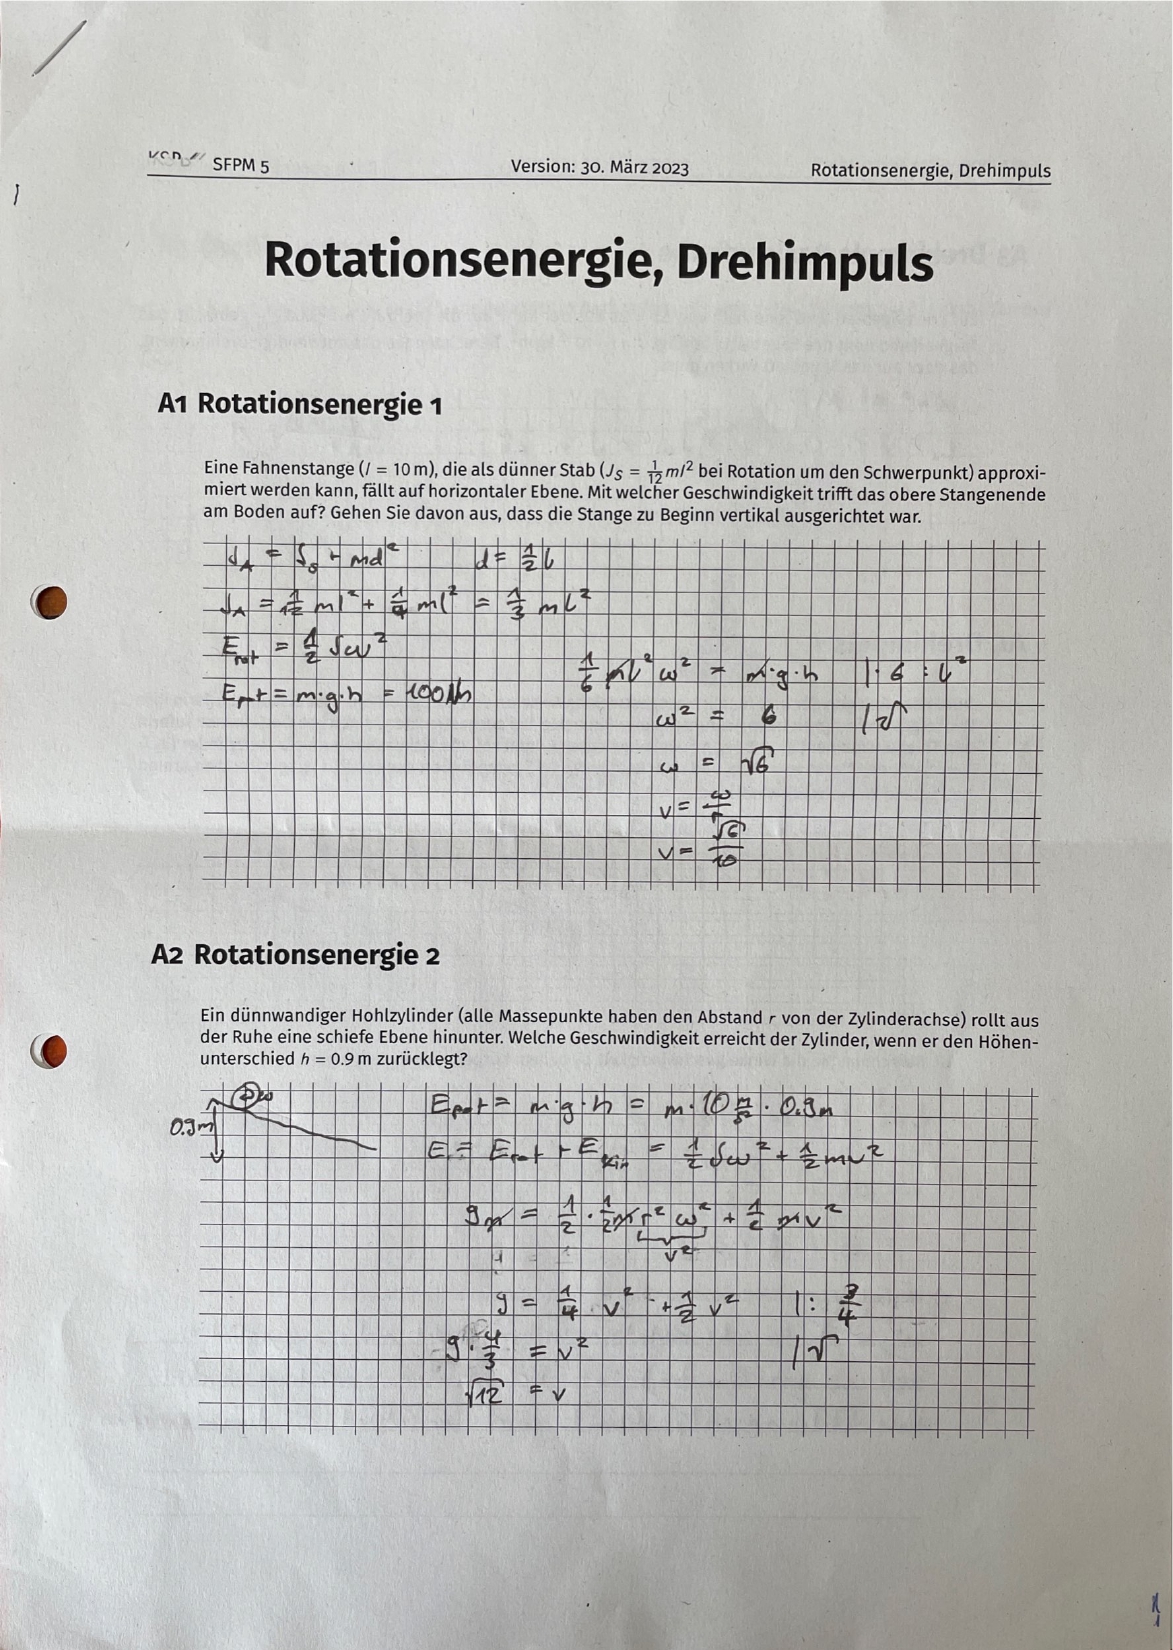 SFPM 5 Version: 30. März 2023 Rotationsenergie, Drehimpuls
Rotationsenergie, Drehimpuls
A1 Rotationsenergie 1
Eine Fahnenstange (l = 10 m), die als dünner Stab (J_S = 1/12 ml² bei Rotation um den Schwerpunkt) approxi-
miert werden kann, fällt auf horizontaler Ebene. Mit welcher Geschwindigkeit trifft das obere Stangenende
am Boden auf? Gehen Sie davon aus, dass die Stange zu Beginn vertikal ausgerichtet war.
J_A = J_S + md² d = 1/2 l
J_A = 1/12 ml² + 1/4 ml² = 1/3 ml²
E_rot = 1/2 Jω²
1/6 ml² ω² = m·g·h |· 6 : l²
E_pot = m·g·h = 100
ω² = 6 |√
ω = √6
v = ω/r
v = √6/10
A2 Rotationsenergie 2
Ein dünnwandiger Hohlzylinder (alle Massepunkte haben den Abstand r von der Zylinderachse) rollt aus
der Ruhe eine schiefe Ebene hinunter. Welche Geschwindigkeit erreicht der Zylinder, wenn er den Höhen-
unterschied h = 0.9 m zurücklegt?
ω
0.9m
E_pot = m·g·h = m·10 m/s² · 0.9m
E = E_rot + E_kin = 1/2 Jω² + 1/2 mv²
9m = 1/2 · 1/2 m r² ω² + 1/2 mv²
v²
9 = 1/4 · v² + 1/2 v² |: 3/4
9 · 4/3 = v² |√
√12 = v